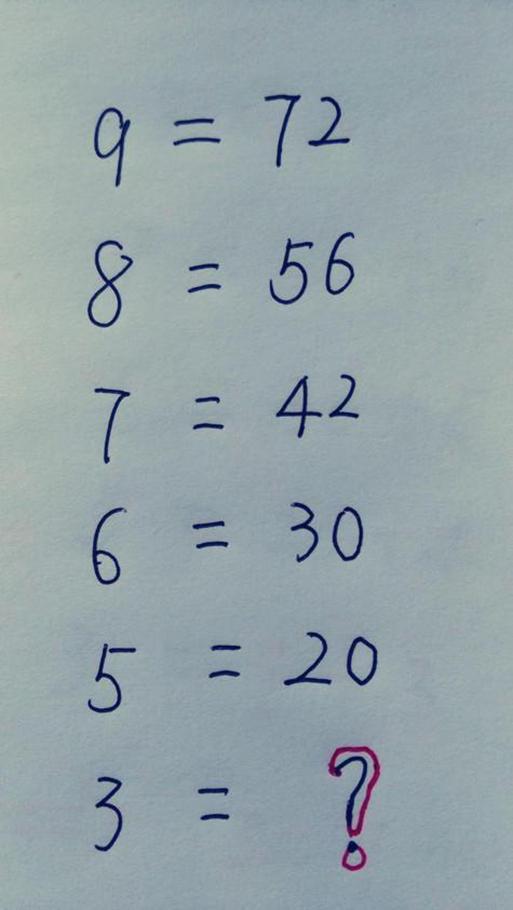 9 = 72
8 = 56
7 = 42
6 = 30
5 = 20
3 = ?